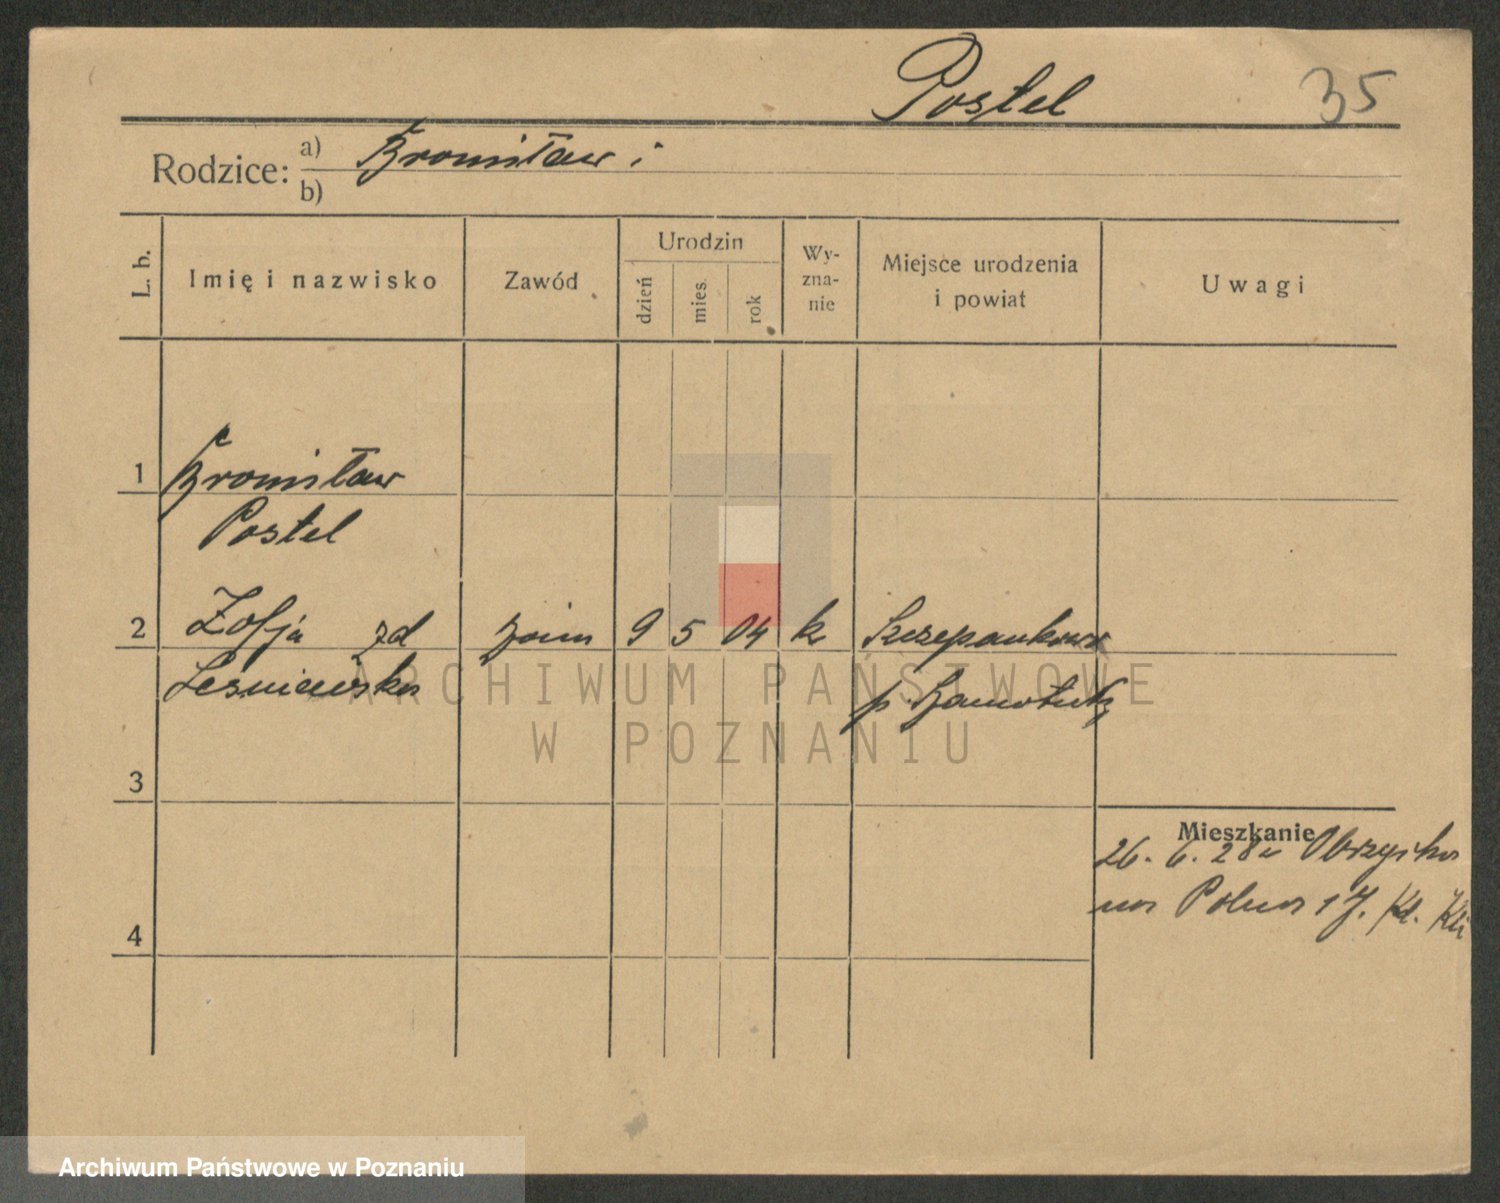 Postel 35
Rodzice: a) Bronisław i
b)
L. b. Imię i nazwisko Zawód Urodzin dzień mies. rok Wy-zna-nie Miejsce urodzenia i powiat Uwagi
1 Bronisław
Postel
2 Zofja zd 9 5 04 k Szczepankowo
Leśniewska p. Szamotuły
3
Mieszkanie
26. 6. 28 z Obrzycka
na Polna 17.
4
ARCHIWUM PAŃSTWOWE
W POZNANIU
Archiwum Państwowe w Poznaniu